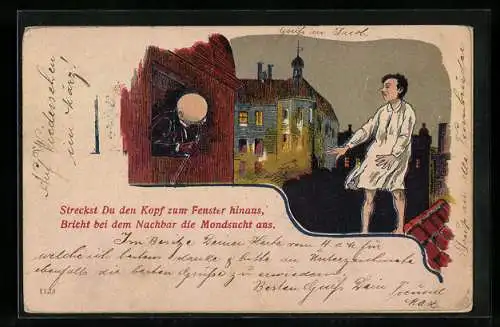 Gruß an
Auf Wiedersehen
im März!
Streckst Du den Kopf zum Fenster hinaus,
Bricht bei dem Nachbar die Mondsucht aus.
Im Besitze Deiner Karte vom
welche ich bestens danke & bitte den Unterzeichnete
ebenfalls die besten Grüße zu erwiedern.
Besten Gruß Dein Freund
Max
1123